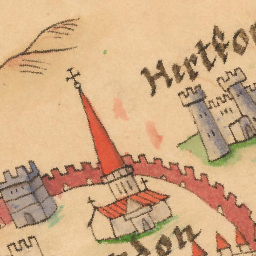 Hertfor
don